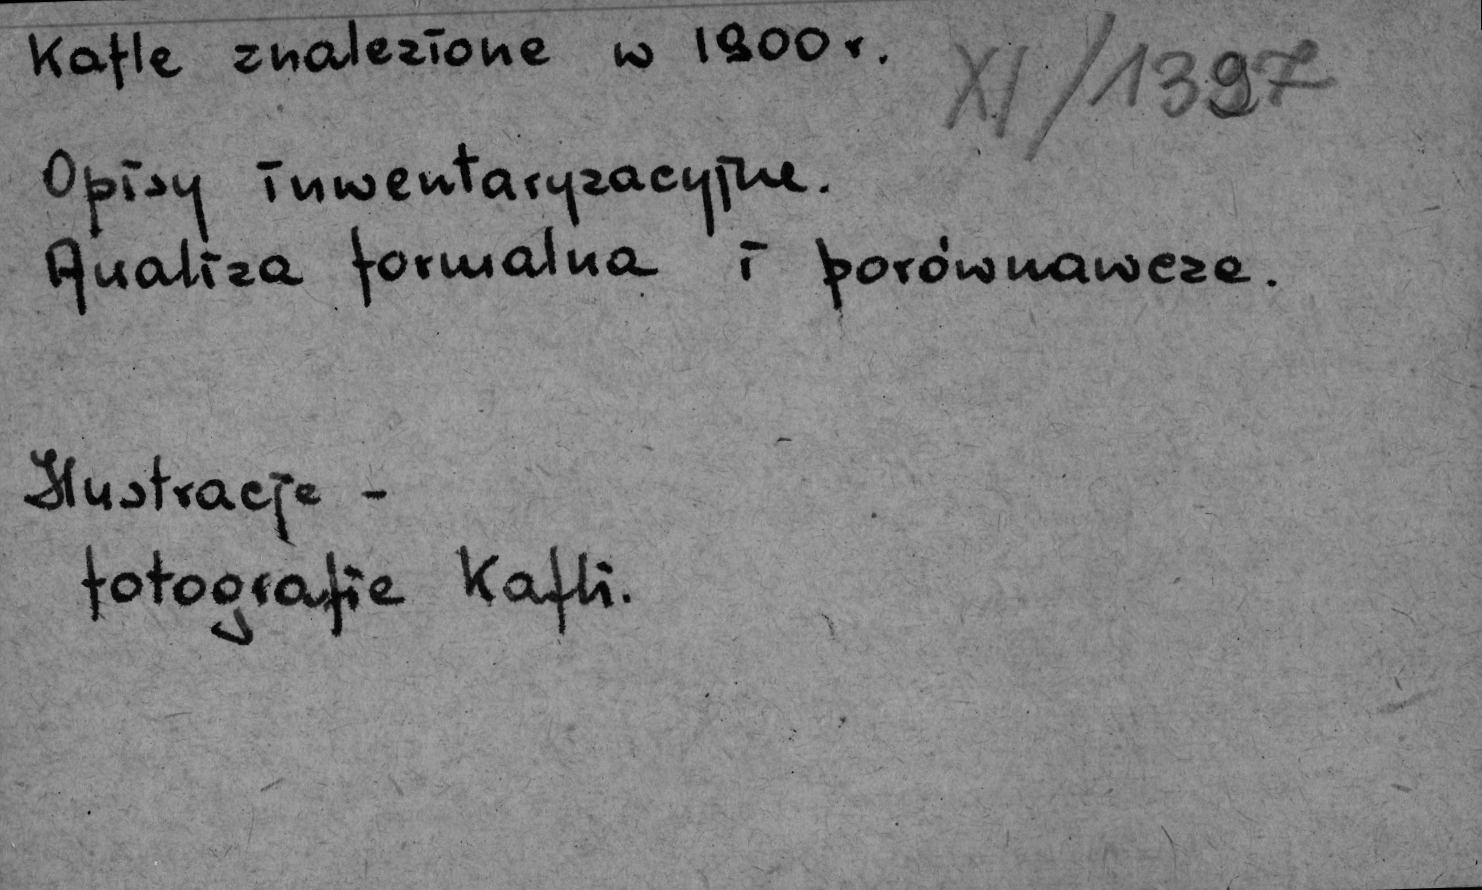 Kafle znalezione w 1900 r.
XI/1397
Opisy inwentaryzacyjne.
Analiza formalna i porównawcza.
Ilustracje -
fotografie Kafli.